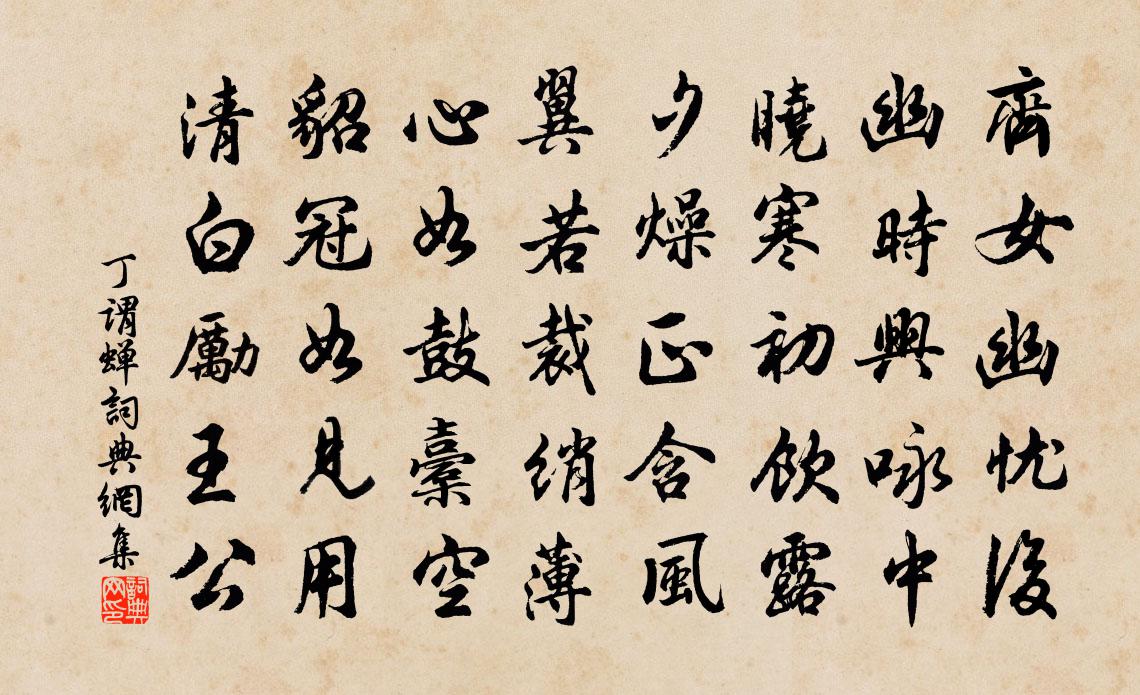 齊女幽忧後
幽時興咏中
曉寒初飲露
夕燥正含風
翼若裁绡薄
心如鼓橐空
貂冠如見用
清白勵王公
丁谓蝉詞典網集
詞典网印